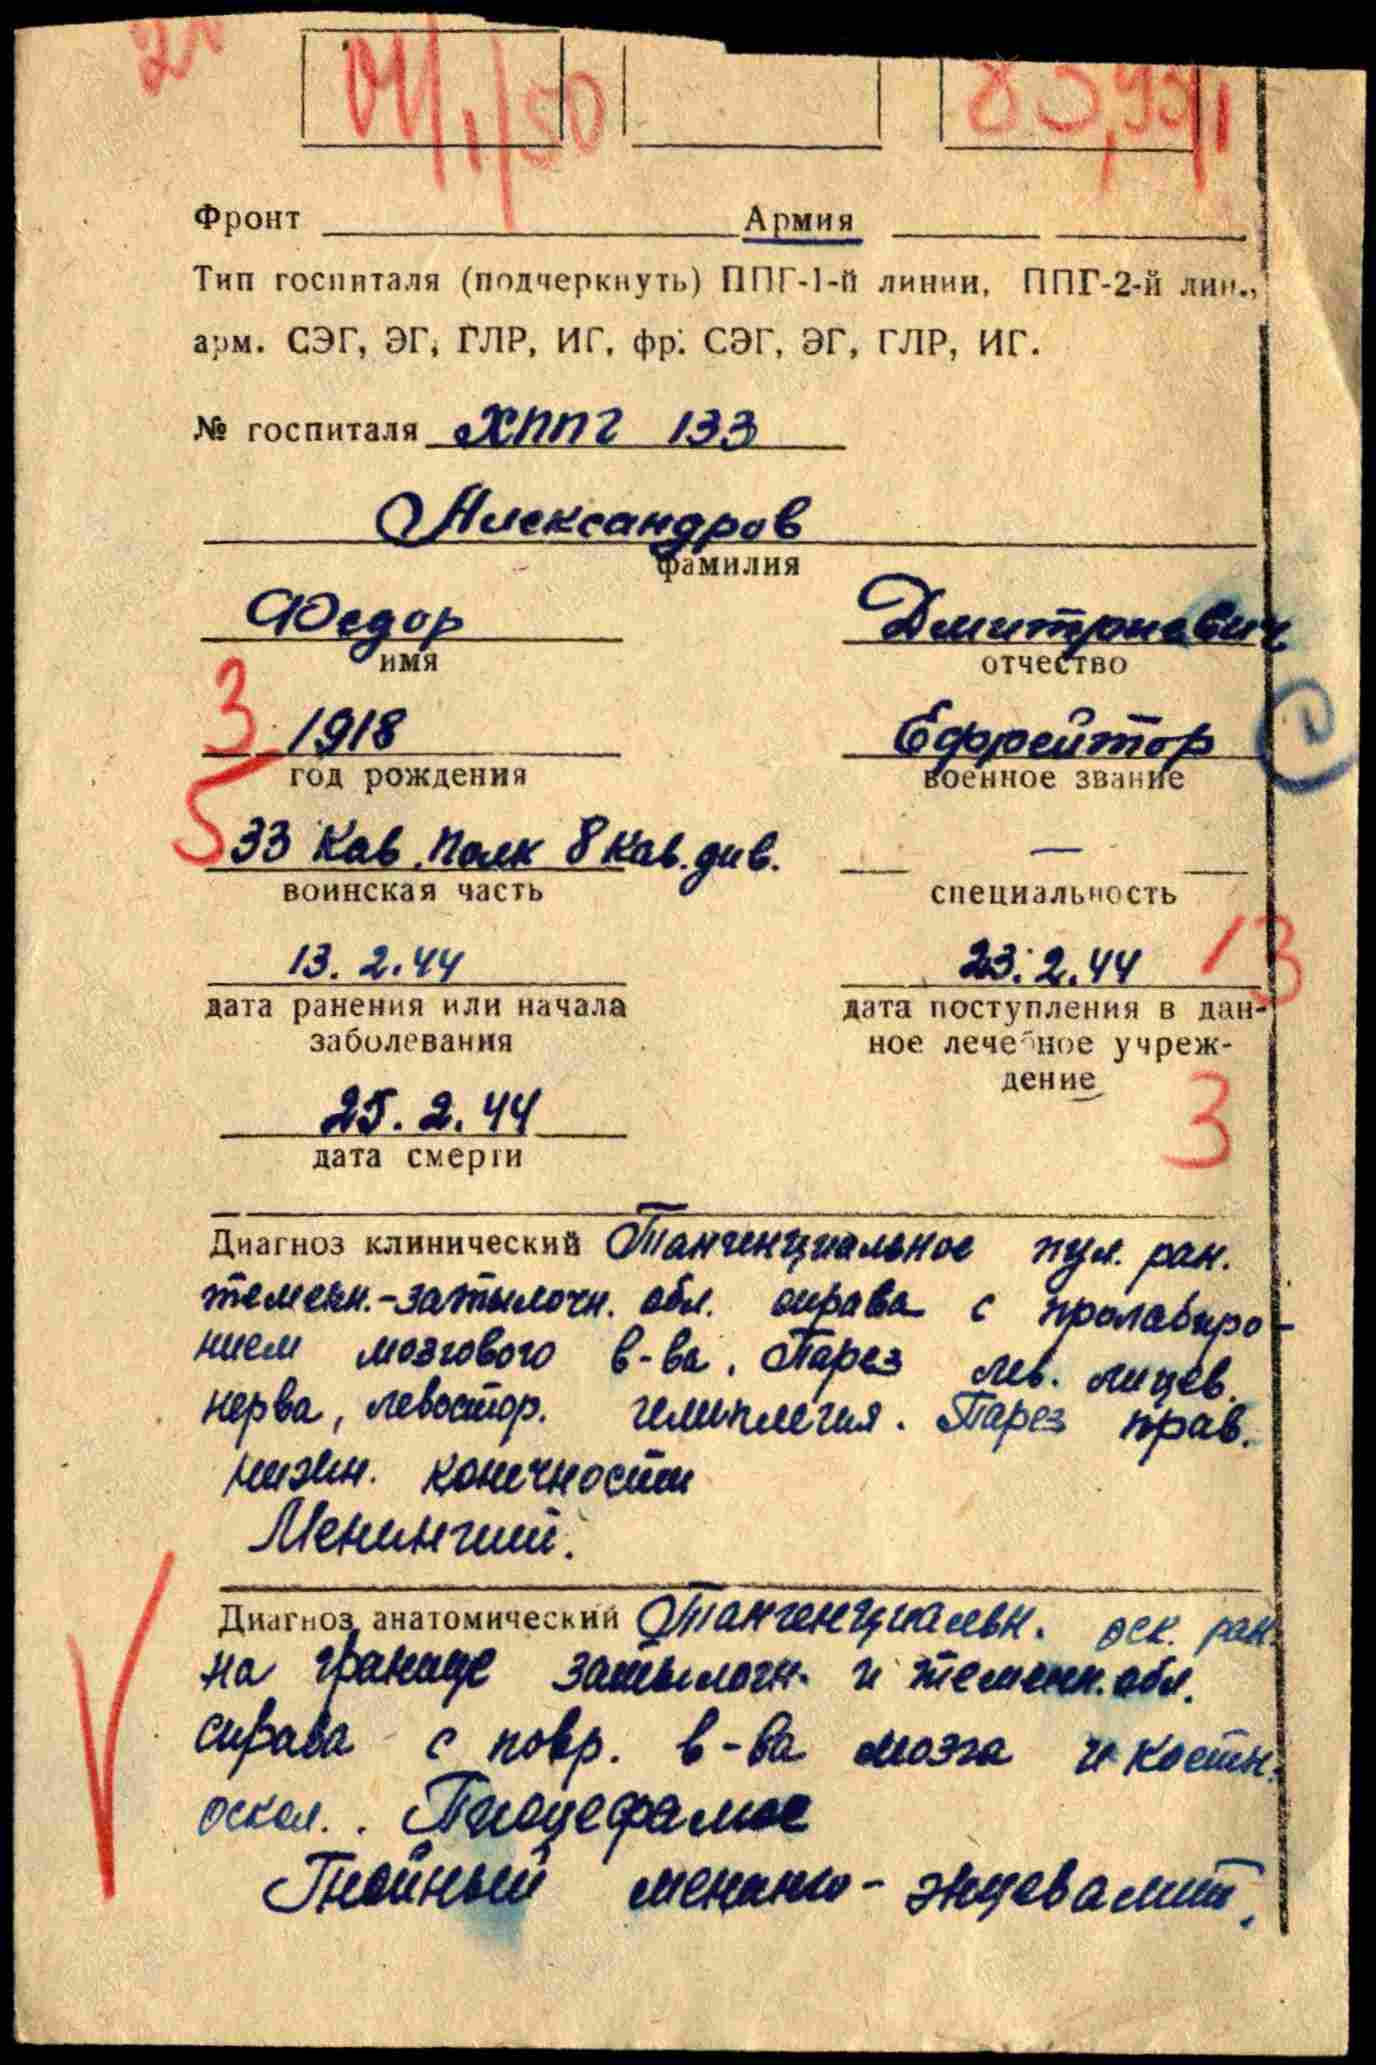 Фронт Армия
Тип госпиталя (подчеркнуть) ППГ-1-й линии, ППГ-2-й лин.,
арм. СЭГ, ЭГ, ГЛР, ИГ, фр. СЭГ, ЭГ, ГЛР, ИГ.
№ госпиталя ХППГ 133
Александров
фамилия
Федор Дмитриевич
имя отчество
3 1918 Ефрейтор
год рождения военное звание
5 33 Кав. полк 8 Кав. див. —
воинская часть специальность
13. 2. 44 23. 2. 44 13
дата ранения или начала дата поступления в дан-
заболевания ное лечебное учреж-
дение
25. 2. 44 3
дата смерти
Диагноз клинический Тангенциальное пул. ран.
темен.-затылочн. обл. справа с пролабиро-
нием мозгового в-ва. Парез лев. лицев.
нерва, левостор. гемиплегия. Парез прав.
нижн. конечности
Менингит.
Диагноз анатомический Тангенциальн. оск. ран.
на границе затылочн. и темен. обл.
справа с повр. в-ва мозга и костн.
оскол.. Пиоцефалие
Гнойный менинго-энцевалит.